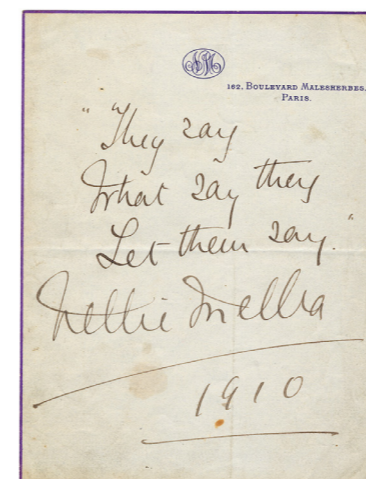 NM
162, Boulevard Malesherbes,
Paris.
" "They say
What say they
Let them say."
Nellie Melba
1910